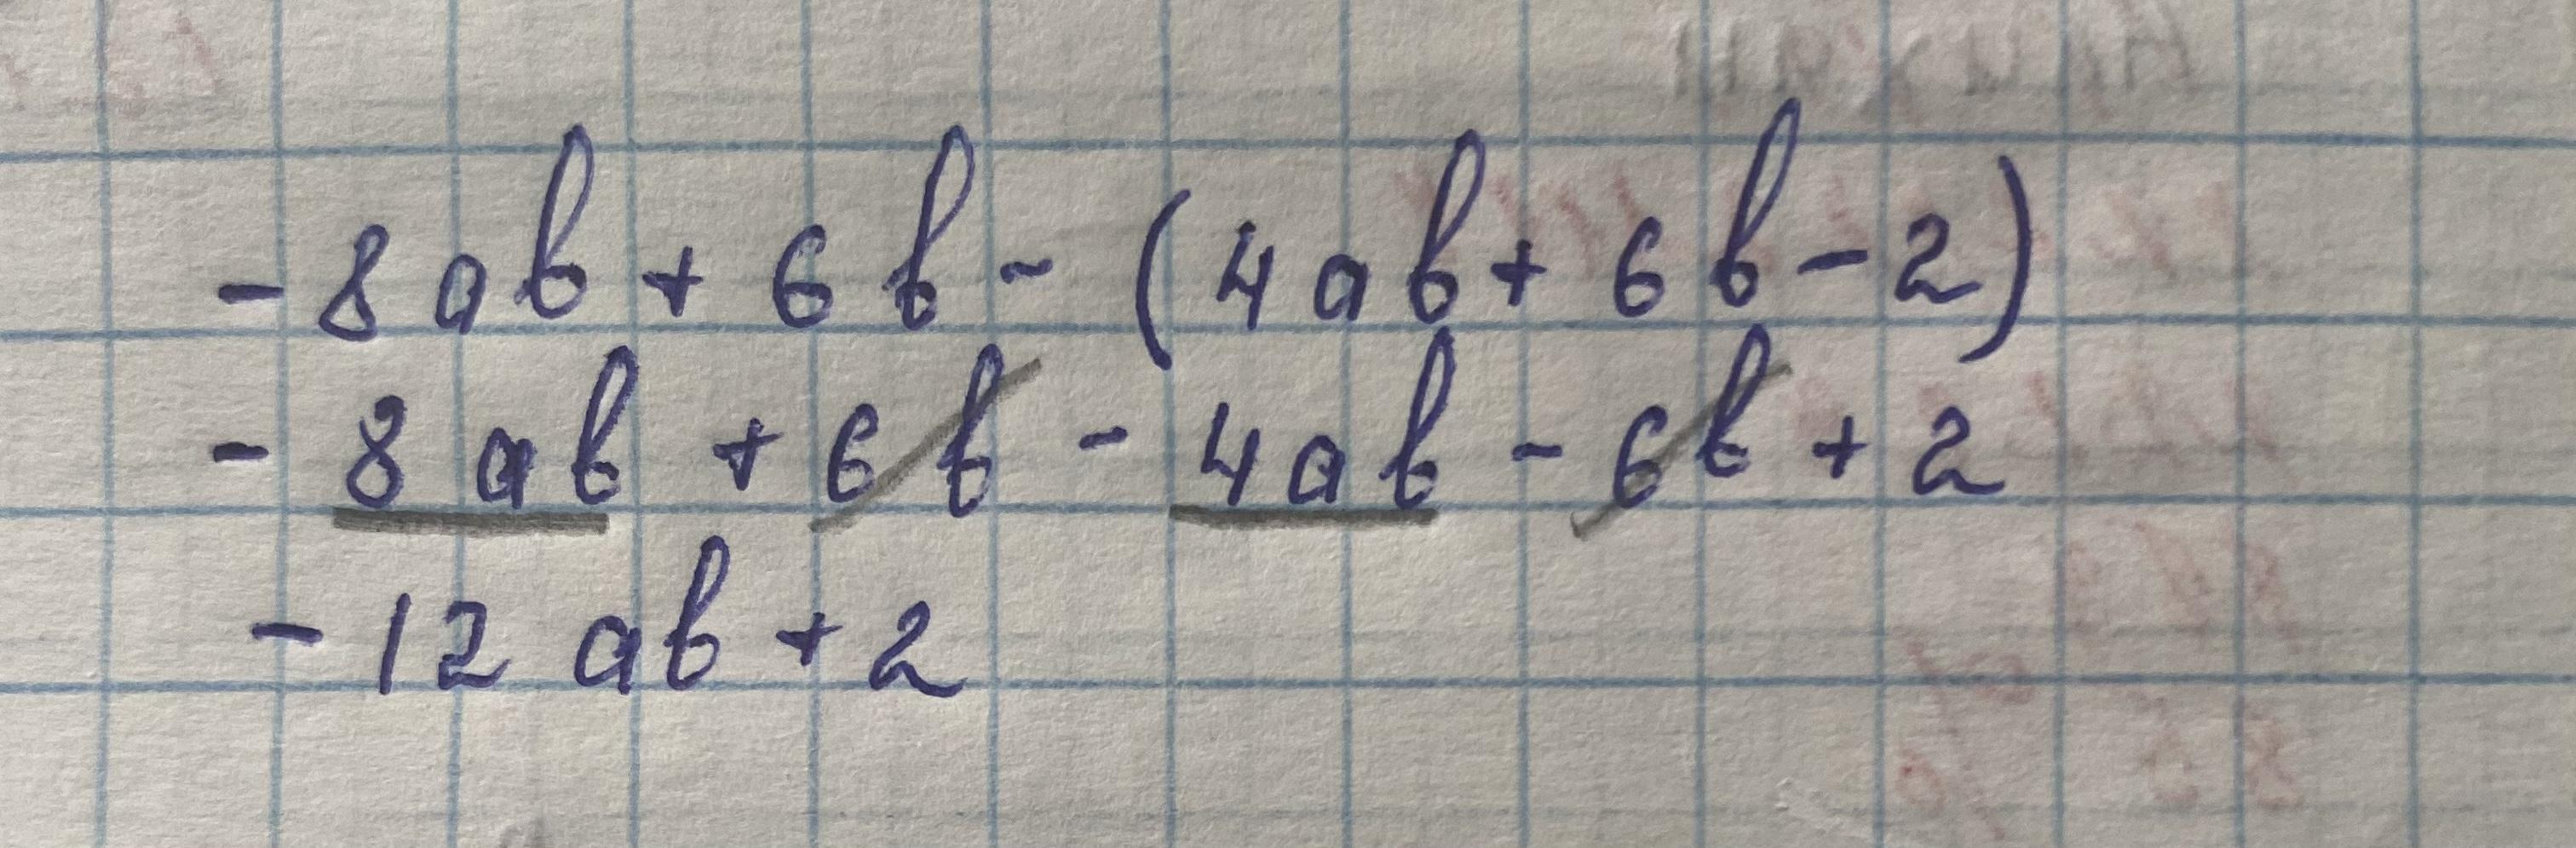 -8ab + 6b - (4ab + 6b - 2)
-8ab + 6b - 4ab - 6b + 2
-12ab + 2